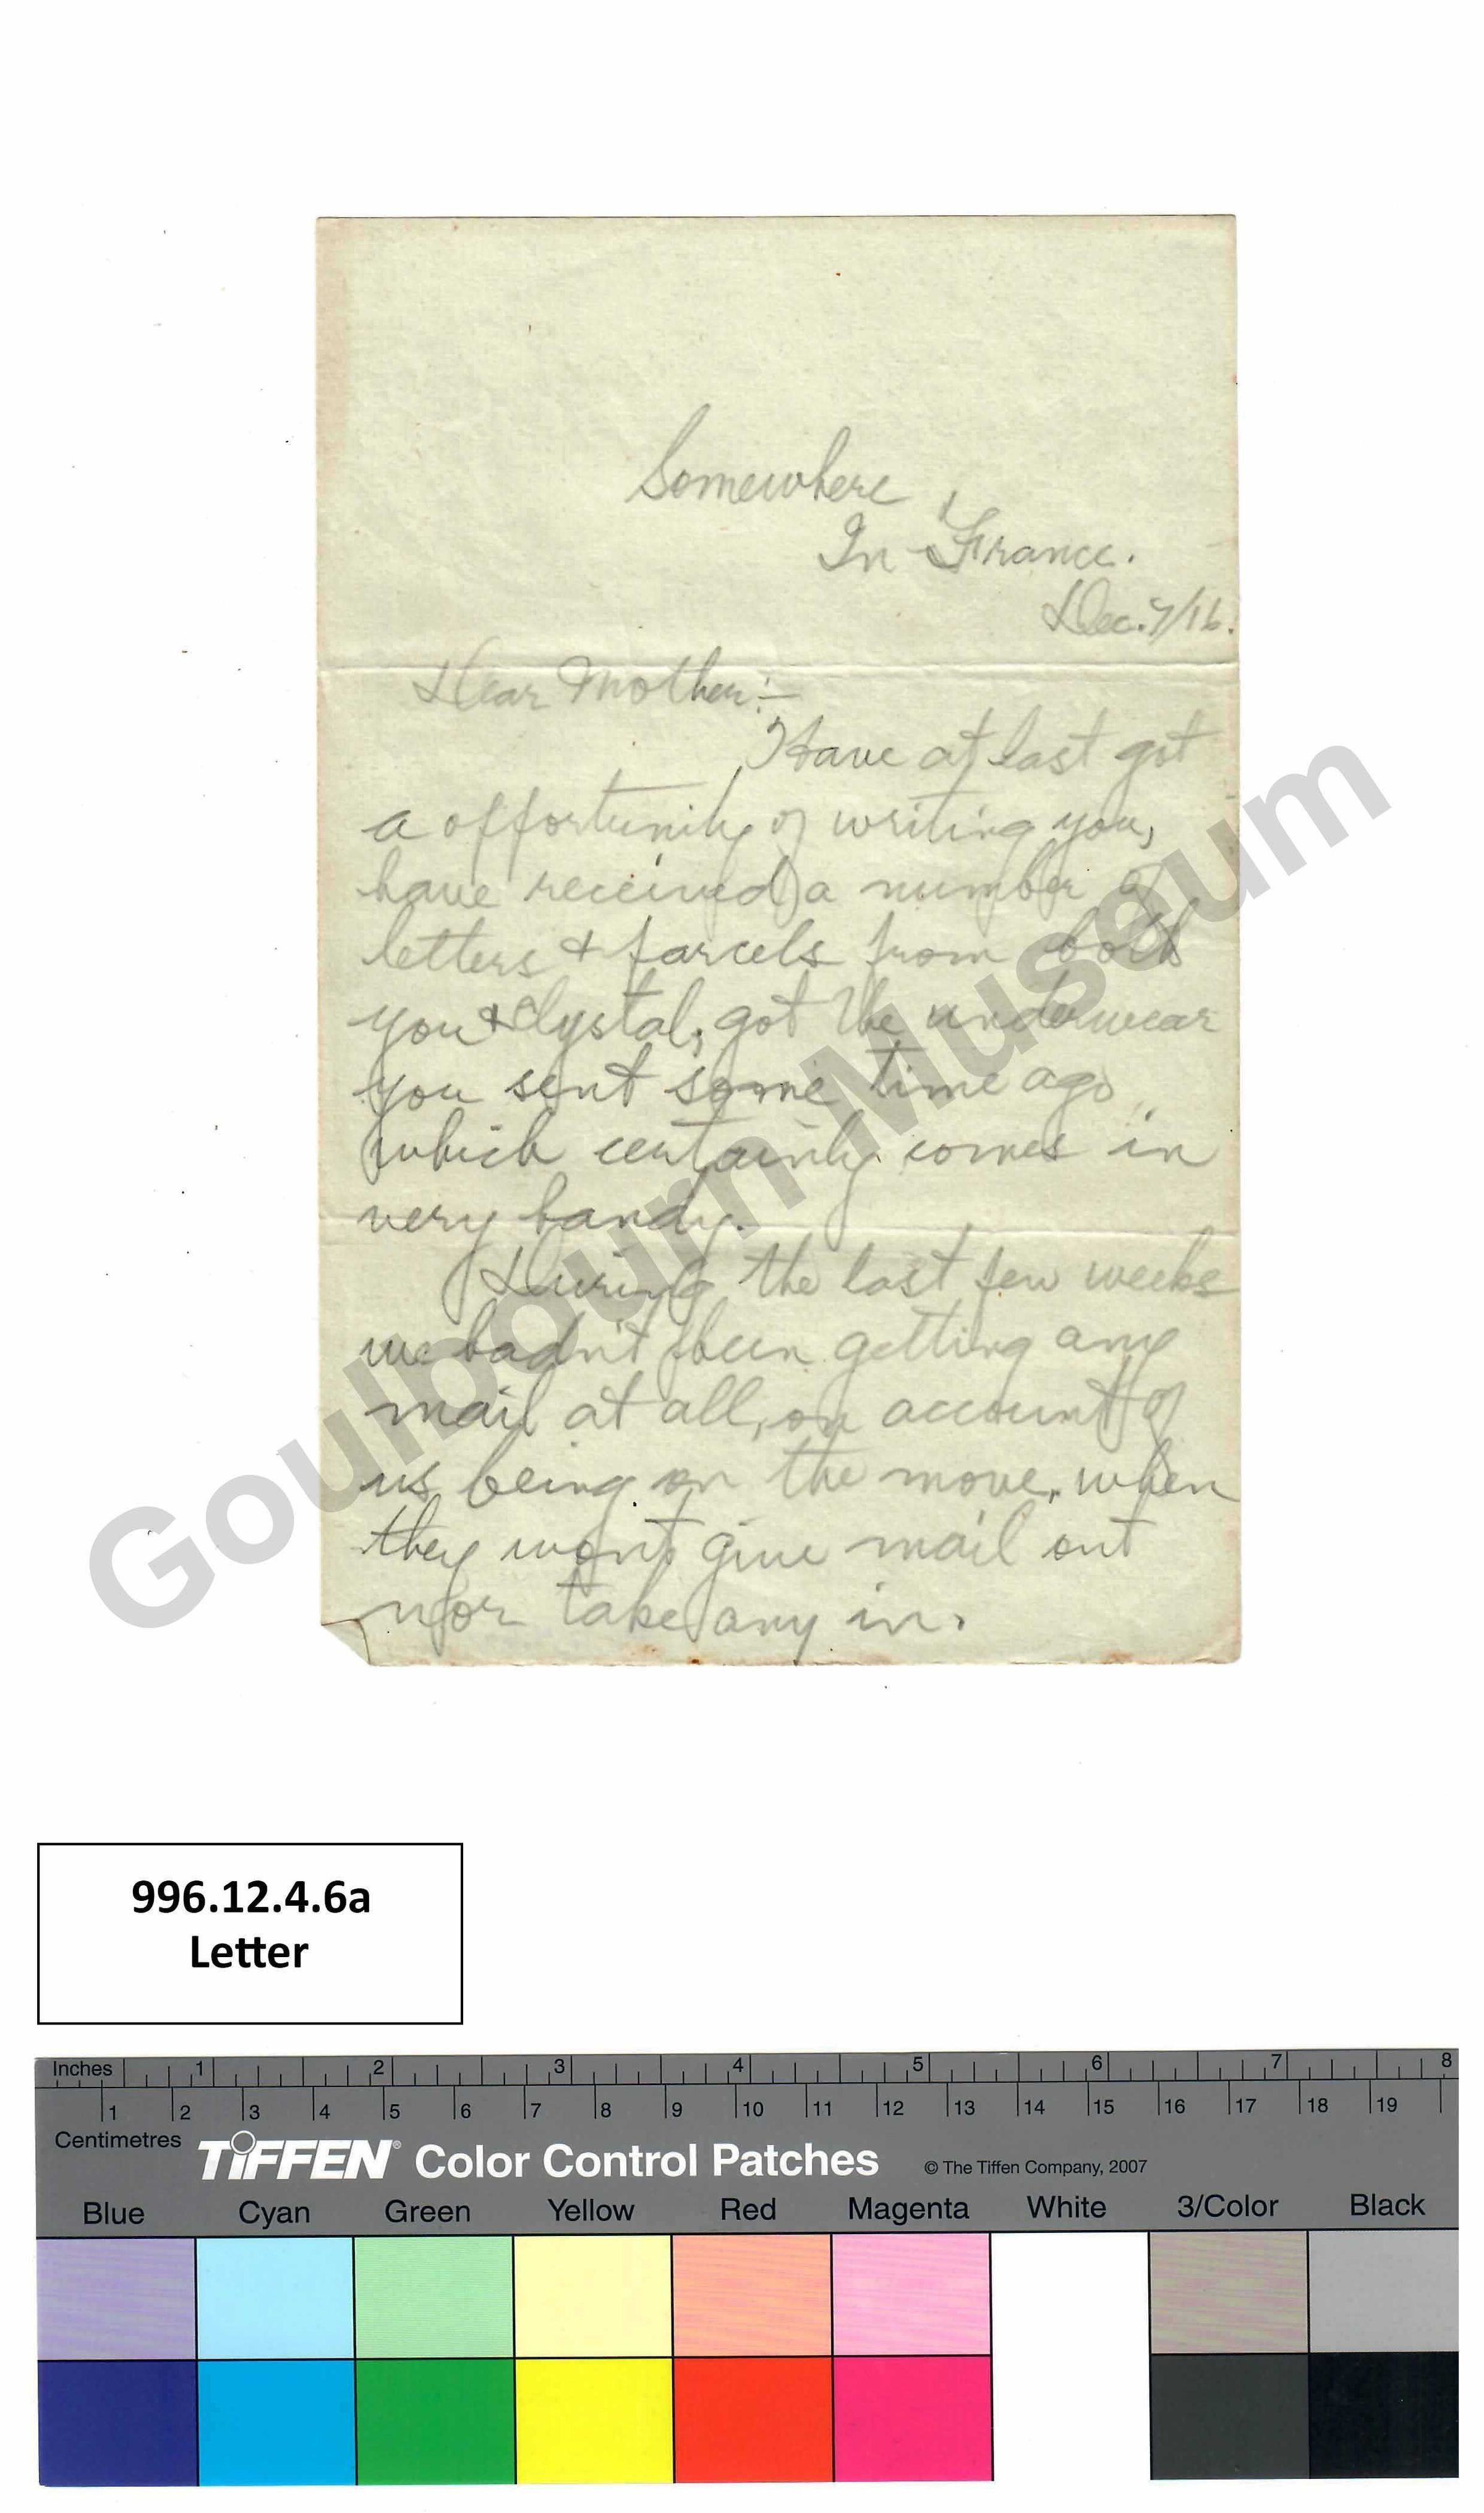 Somewhere
In France.
Dec. 7/16.
Dear Mother:-
Have at last got
a opportunity of writing you,
have received a number of
letters & parcels from both
you & Clystal, got the underwear
you sent some time ago
which certainly comes in
very handy.
During the last few weeks
we hadn't been getting any
mail at all, on account of
us being on the move, when
they won't give mail out
nor take any in.
Goulbourn Museum
996.12.4.6a
Letter
Inches 1 2 3 4 5 6 7 8
1 2 3 4 5 6 7 8 9 10 11 12 13 14 15 16 17 18 19
Centimetres
TIFFEN® Color Control Patches © The Tiffen Company, 2007
Blue Cyan Green Yellow Red Magenta White 3/Color Black